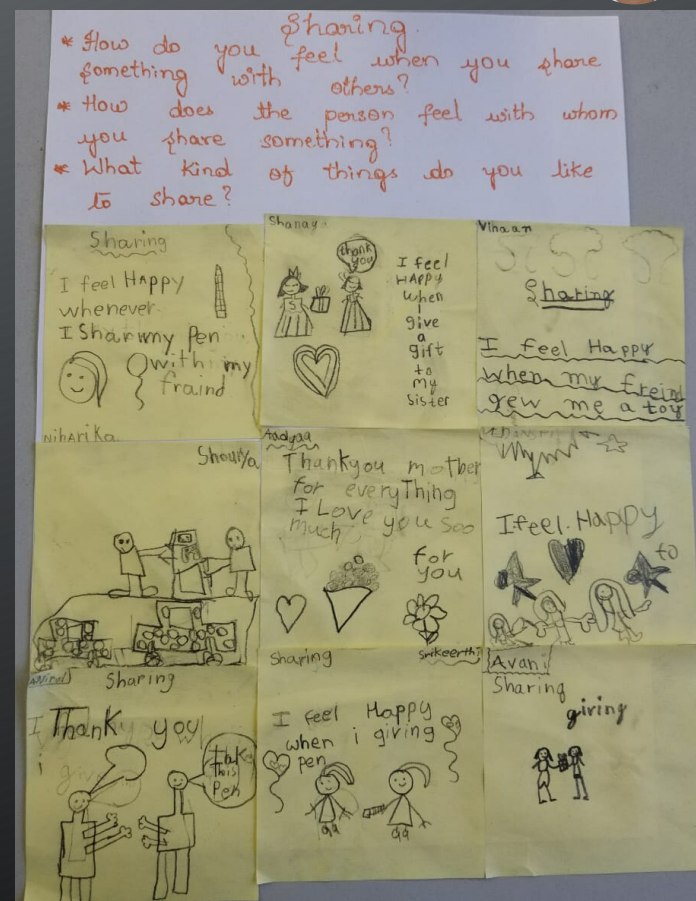 Sharing
* How do you feel when you share
something with others?
* How does the person feel with whom
you share something?
* What kind of things do you like
to share?
Sharing
I feel HAPPY
whenever
I Sharwmy Pen
with my
fraind
NiHARiKa
Shanaya
thank
you
I feel
HAPPY
when
I
give
a
gift
to
my
Sister
S
Vihaan
Sharing
I feel Happy
when my freind
gew me a toy
Shourya
Aadyaa
Thankyou mother
for everyThing
I Love you Soo
much
for
you
I feel. Happy
to
Sharing
I Thank you
i
Take
This
Pen
Sharing
Srikeerthi
I feel Happy
when i giving
pen
Avani
Sharing
giring